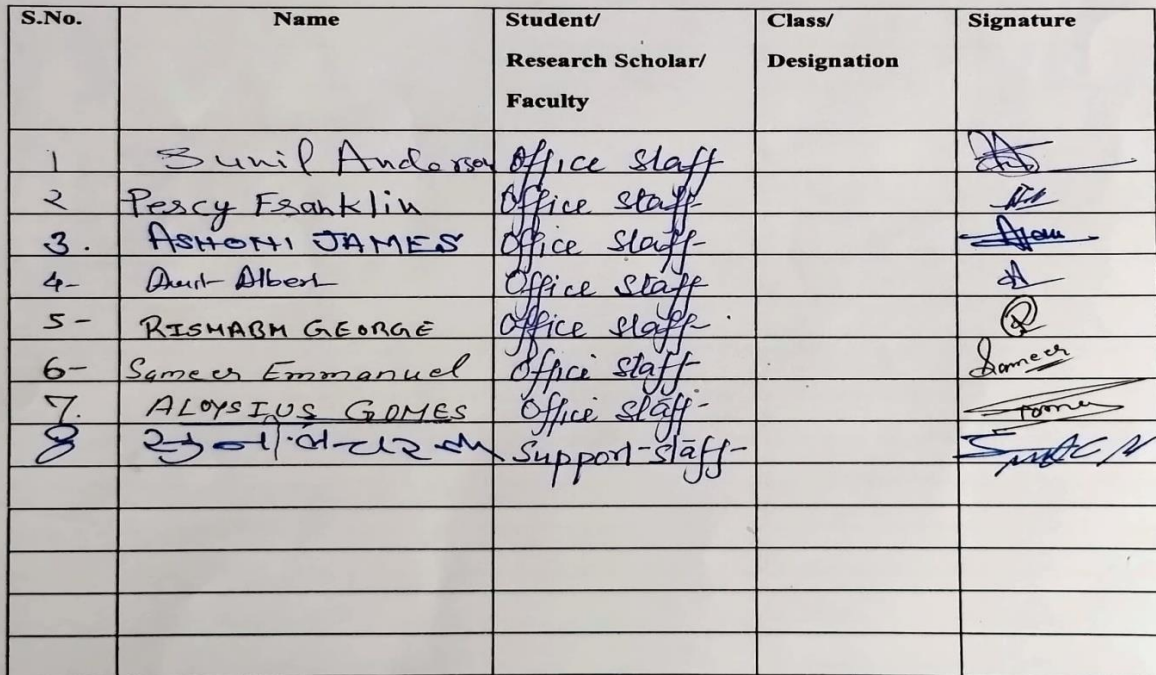 S.No. Name Student/ Class/ Signature
Research Scholar/ Designation
Faculty
1 Sunil Anderson Office staff
2 Percy Franklin Office staff
3. ASHONI JAMES Office staff
4- Albert Office staff
5- RISHABH GEORGE Office staff
6- Sameer Emmanuel Office staff Sameer
7. ALOYSIUS GOMES Office staff
8 Support-staff